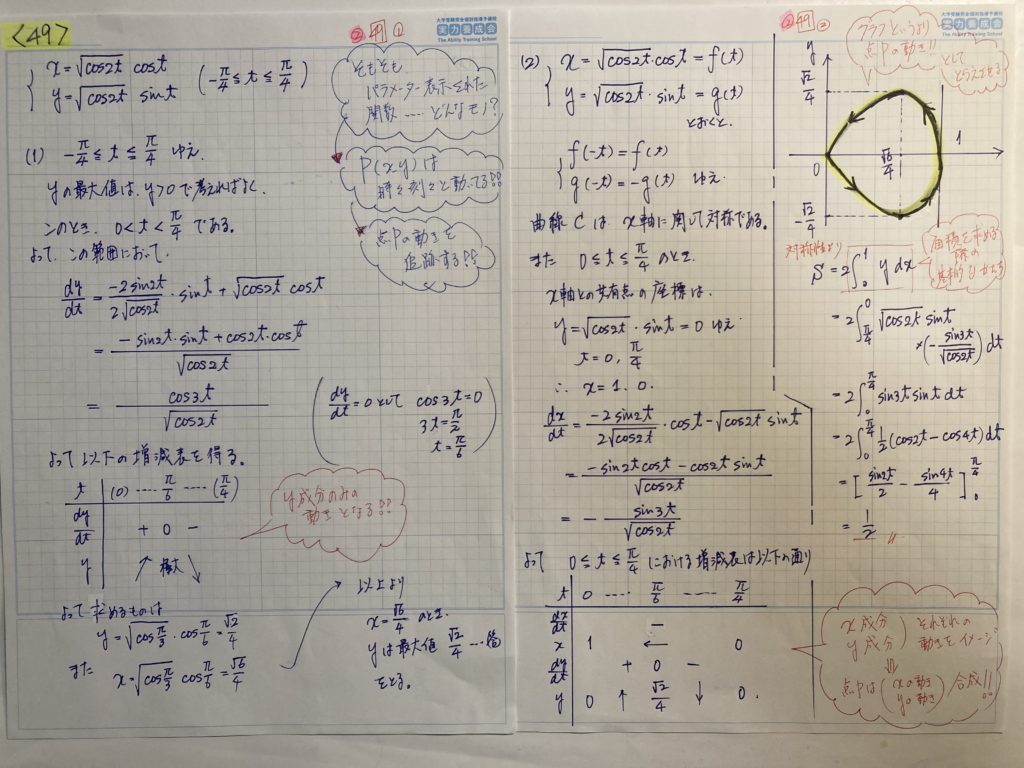 <49>
② 49 ①
大学受験完全個別指導予備校
実力養成会
The Ability Training School
x=√cos2t cost
y=√cos2t sint
(-π/4≦t≦π/4)
そもそも
パラメーター表示された
関数……どんなモノ?
P(x,y)は
時々刻々と動いてる!!
点Pの動きを
追跡する!!
(1) -π/4≦t≦π/4 ゆえ、
yの最大値は、y>0で考えればよく、
このとき、0<t<π/4 である。
よって、この範囲において、
dy/dt = -2sin2t/2√cos2t・sint+√cos2t cost
= -sin2t・sint+cos2t・cost/√cos2t
= cos3t/√cos2t
(dy/dt=0として cos3t=0
3t=π/2
t=π/6)
よって以下の増減表を得る。
t (0) …… π/6 …… (π/4)
dy/dt + 0 −
y ↗ 極大 ↘
y成分のみの
動きとなる!!
よって求めるものは
y=√cosπ/3・cosπ/6=√2/4
また
x=√cosπ/3 cosπ/6=√6/4
以上より
x=√6/4 のとき、
yは最大値 √2/4 …答
をとる。
② 49 ②
大学受験完全個別指導予備校
実力養成会
The Ability Training School
(2) x=√cos2t・cost=f(t)
y=√cos2t・sint=g(t)
とおくと、
f(-t)=f(t)
g(-t)=-g(t) ゆえ
曲線Cは、x軸に関して対称である。
また 0≦t≦π/4のとき、
x軸との共有点の座標は、
y=√cos2t・sint=0 ゆえ
t=0,π/4
∴ x=1,0.
dx/dt = -2sin2t/2√cos2t・cost-√cos2t sint
= -sin2t cost-cos2t sint/√cos2t
= - sin3t/√cos2t
よって 0≦t≦π/4 における増減表は以下の通り
t 0 …… π/6 …… π/4
dx/dt −
x 1 ← 0
dy/dt + 0 −
y 0 ↑ √2/4 ↓ 0.
グラフというより
点Pの動き!!
として
とらえさせる
y
√2/4
0
√6/4
1
x
-√2/4
対称性より
S=2∫₀¹ y dx
面積を求める
際の
=2∫_{π/4}^0 √cos2t sint
×(-sin3t/√cos2t)dt
=2∫₀^{π/4} sin3t sint dt
=2∫₀^{π/4} 1/2(cos2t-cos4t)dt
=[sin2t/2 - sin4t/4]₀^{π/4}
=1/2
x成分
y成分
それぞれの
動きをイメージ
⇓
点Pは(xの動き
yの動き) 合成!!